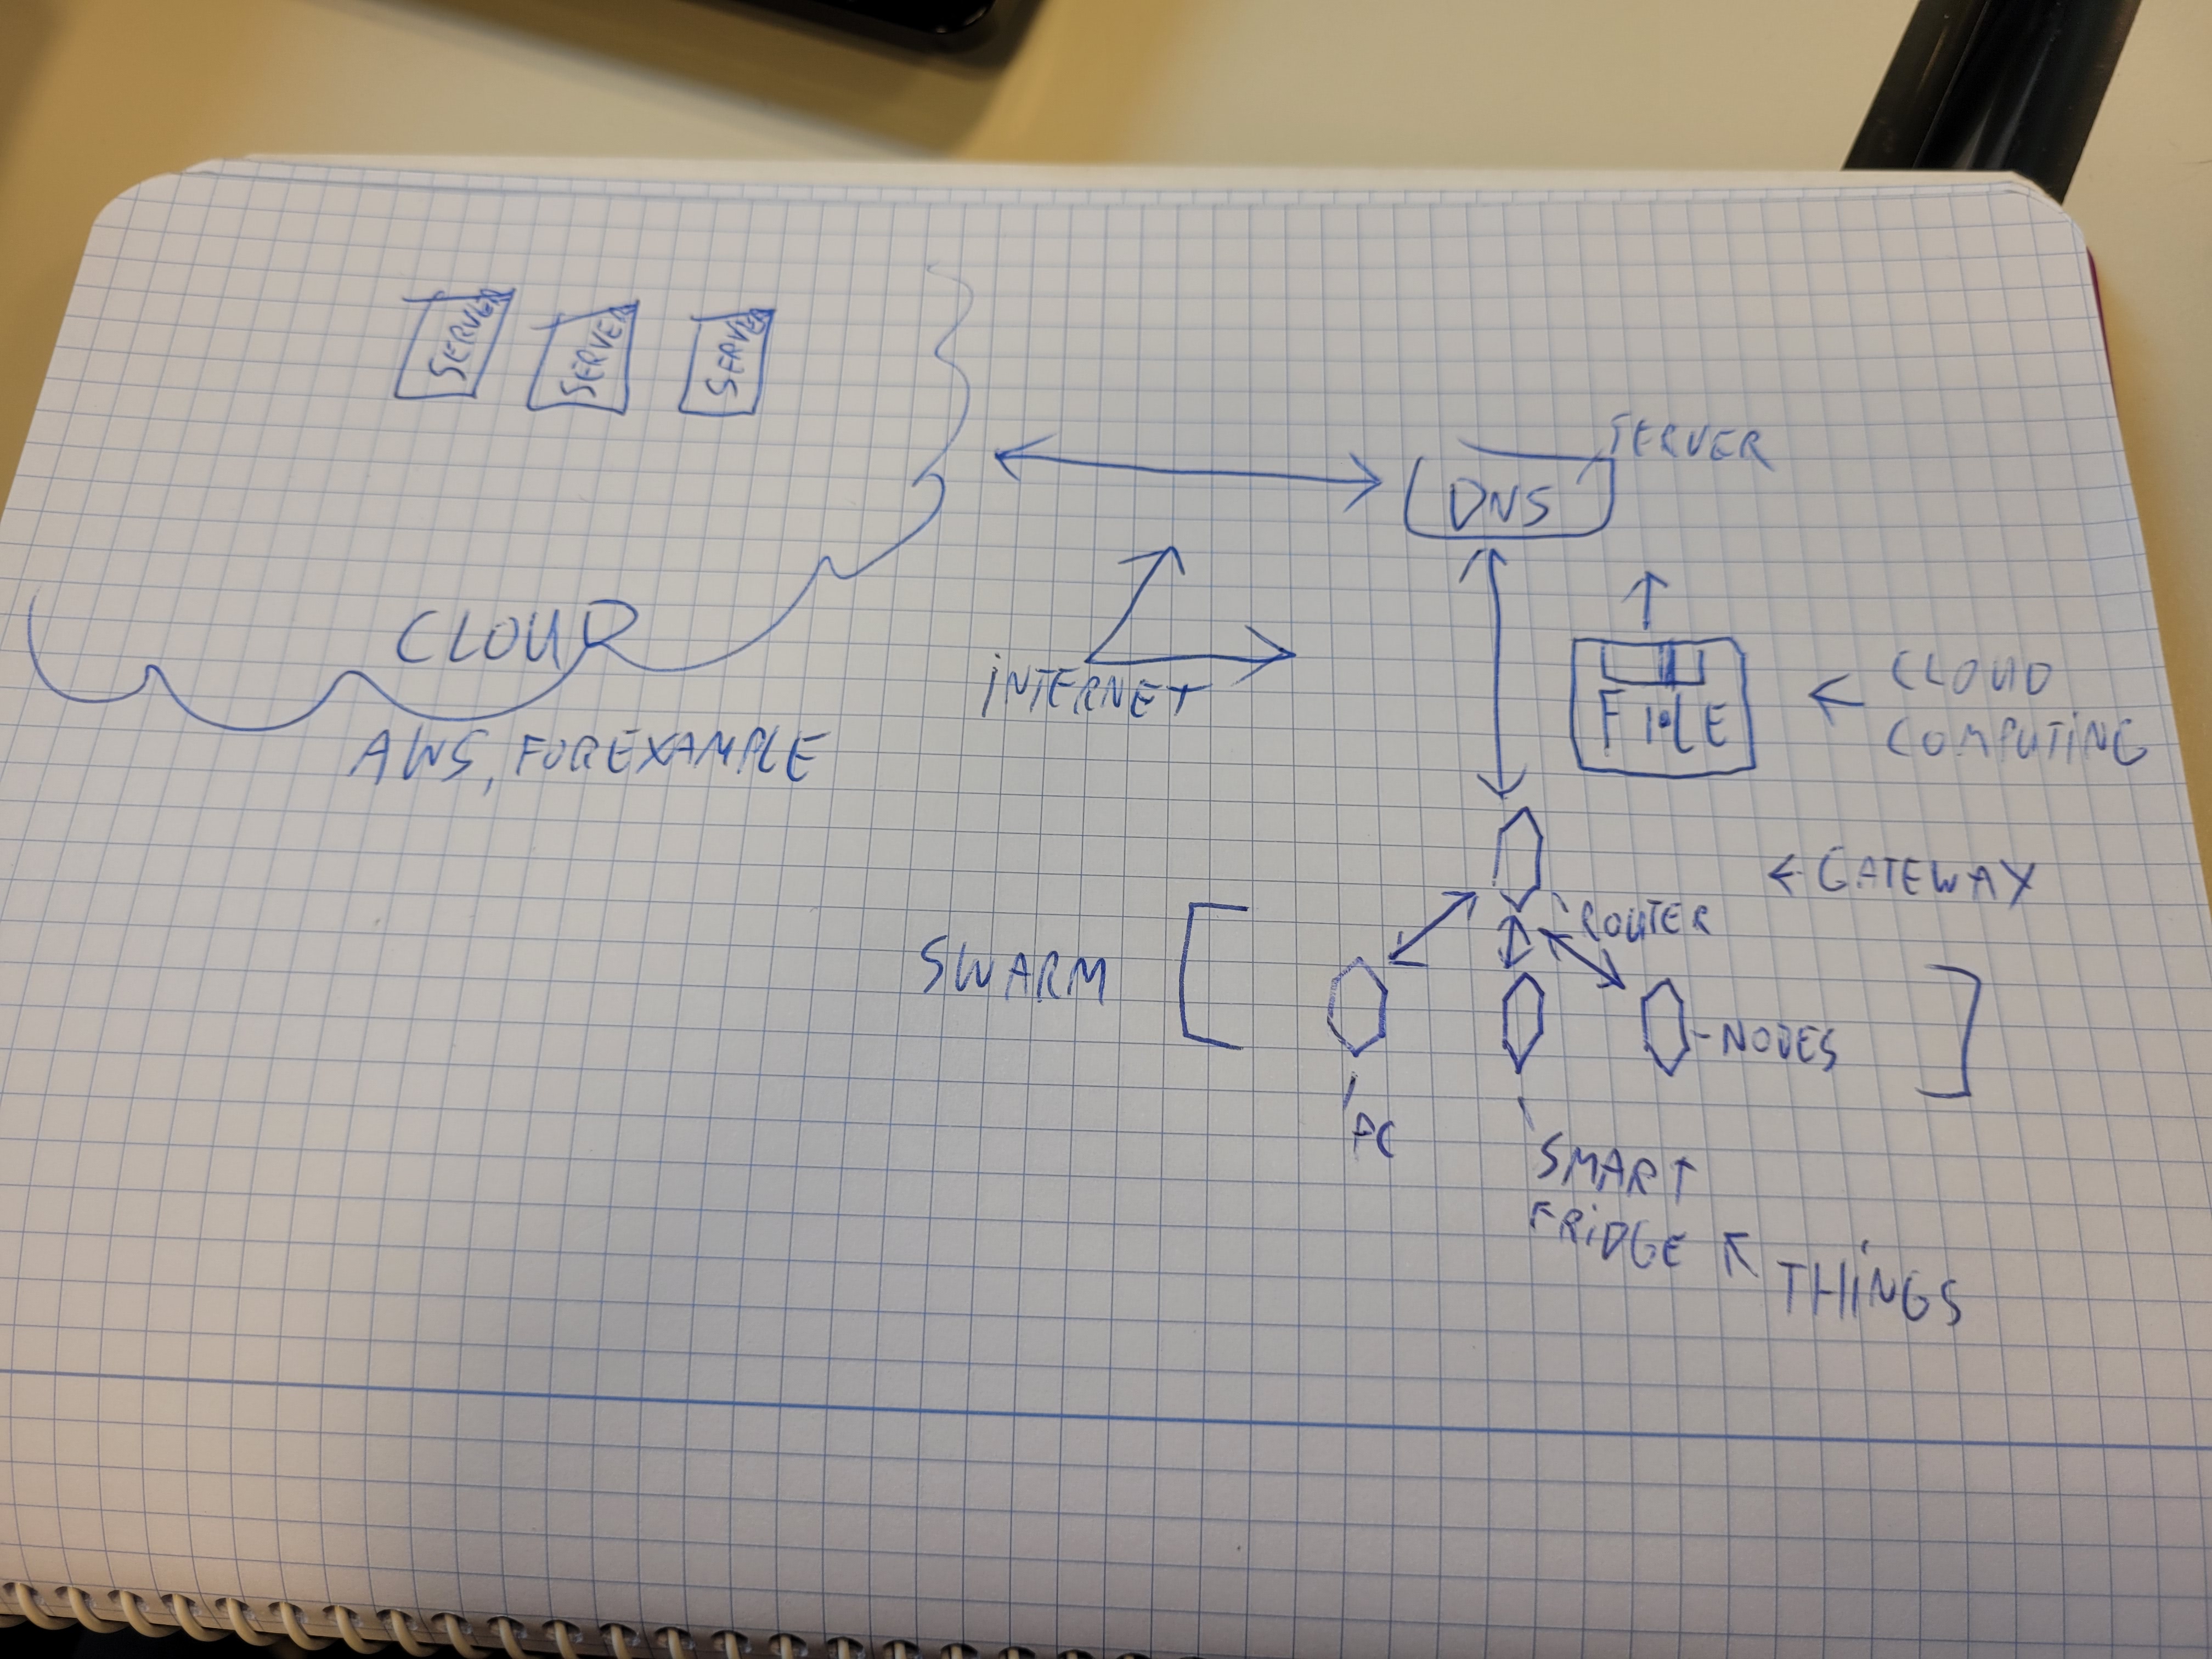 SERVER
SERVER
SERVER
CLOUD
AWS, FOR EXAMPLE
INTERNET
DNS
SERVER
FILE
CLOUD
COMPUTING
ROUTER
GATEWAY
SWARM
NODES
PC
SMART
FRIDGE
THINGS